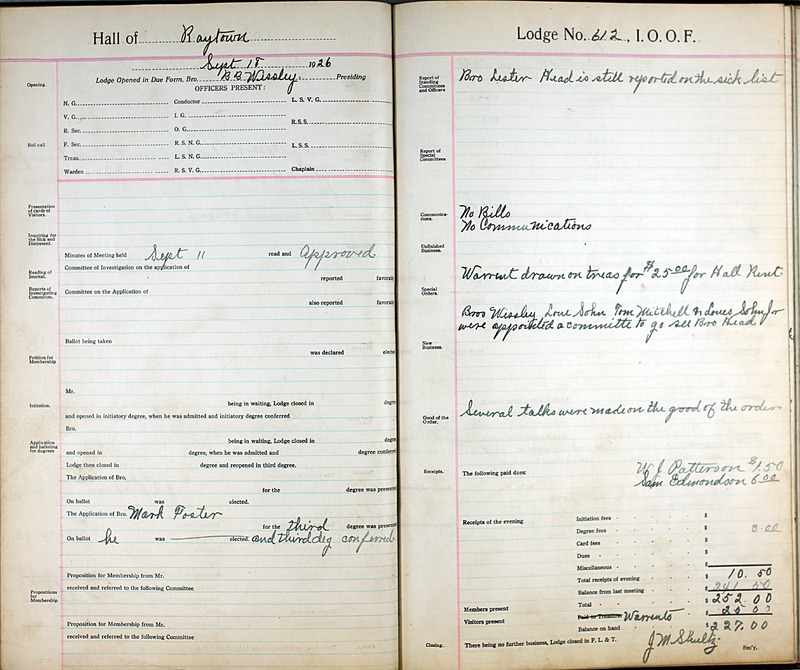 Hall of Raytown
Sept 18 1926
Lodge Opened in Due Form, Bro. B.B. Wissley Presiding
Opening.
OFFICERS PRESENT:
N. G. Conductor L. S. V. G.
V. G. I. G. R.S.S.
R. Sec. O. G.
Roll call. F. Sec. R. S. N. G. L. S. S.
Treas. L. S. N. G.
Warden R. S. V. G. Chaplain
Presentation of cards of Visitors.
Inquiring for the Sick and Distressed.
Minutes of Meeting held Sept 11 read and Approved
Reading of Journal.
Committee of Investigation on the application of
reported favorab
Reports of Investigating Committee.
Committee on the Application of
also reported favorab
Ballot being taken
was declared elected
Petition for Membership
Mr.
Initiation. being in waiting, Lodge closed in degre
and opened in initiatory degree, when he was admitted and initiatory degree conferred
Bro.
Application and balloting for degrees
being in waiting, Lodge closed in degre
and opened in degree, when he was admitted and degree conferre
Lodge then closed in degree and reopened in third degree.
The Application of Bro.
for the degree was presente
On ballot was elected.
The Application of Bro. Mark Foster
for the third degree was presente
On ballot he was elected. and third deg conferred
Propositions for Membership
Proposition for Membership from Mr.
received and referred to the following Committee
Proposition for Membership from Mr.
received and referred to the following Committee
Lodge No. 612, I. O. O. F.
Report of Standing Committees and Officers
Bro Lester Head is still reported on the sick list
Report of Special Committees
Communications.
No Bills
No Communications
Unfinished Business.
Warrent drawn on treas for $25.00 for Hall Rent
Special Orders.
Bros Wissley Love Sohn Tom Mitchell & Louis Sohn Jr
were appointed a committe to go see Bro Head
New Business.
Good of the Order.
Several talks were made on the good of the order
Receipts. The following paid dues: W. J. Patterson $1.50
Sam Edmondson 6.00
Receipts of the evening Initiation fees $
Degree fees $ 3.00
Card fees $
Dues $
Miscellaneous $
Total receipts of evening $ 10.50
Balance from last meeting $ 241 50
Total $ 252 00
Members present Paid to Treasurer Warrents $ 25 00
Visitors present Balance on hand $ 227.00
Closing. There being no further business, Lodge closed in F. L. & T. J M Shultz Sec'y.